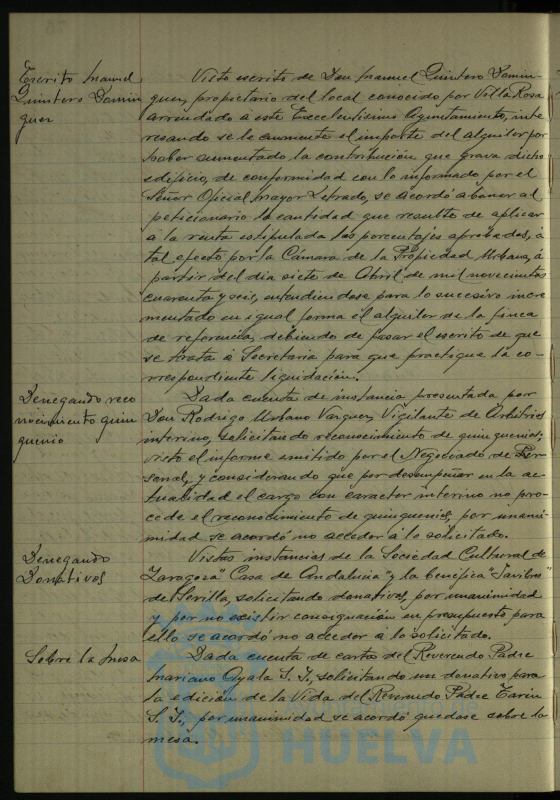 Escrito Manuel
Quintero Domin
guez
Visto escrito de Don Manuel Quintero Domin-
guez, propietario del local conocido por Villa Rosa
arrendado a este Excelentísimo Ayuntamiento, inte
resando se le aumente el importe del alquiler por
haber aumentado la contribución que grava dicho
edificio, de conformidad con lo informado por el
Señor Oficial Mayor Letrado, se acordó abonar al
peticionario la cantidad que resulte de aplicar
a la renta estipulada los porcentajes aprobados, a
tal efecto por la Cámara de la Propiedad Urbana, a
partir del dia siete de Abril de mil novecientos
cuarenta y seis, entendiendose para lo sucesivo incre
mentado en igual forma el alquiler de la finca
de referencia, debiendo de pasar el escrito de que
se trata a Secretaria para que practique la co-
rrespondiente liquidación.
Denegando reco
nocimiento quin
quenio
Dada cuenta de instancia presentada por
Don Rodrigo Urbano Vazquez, Vigilante de Arbitrios
interino, solicitando reconocimiento de quinquenios,
visto el informe emitido por el Negociado de Per
sonal, y considerando que por desempeñar en la ac-
tualidad el cargo con caracter interino no pro-
cede el reconocimiento de quinquenios, por unani-
midad se acordó no acceder a lo solicitado.
Denegando
Donativos
Vistas instancias de la Sociedad Cultural de
Zaragoza "Casa de Andalucia" y la benéfica
de Sevilla, solicitando donativos, por unanimidad
y por no existir consignación en presupuesto para
ello se acordó no acceder a lo solicitado.
Sobre la mesa
Dada cuenta de carta del Reverendo Padre
Mariano Ayala S. J., solicitando un donativo para
la edición de la Vida del Reverendo Padre Tarin
S. J., por unanimidad se acordó quedase sobre la
mesa.
HUELVA